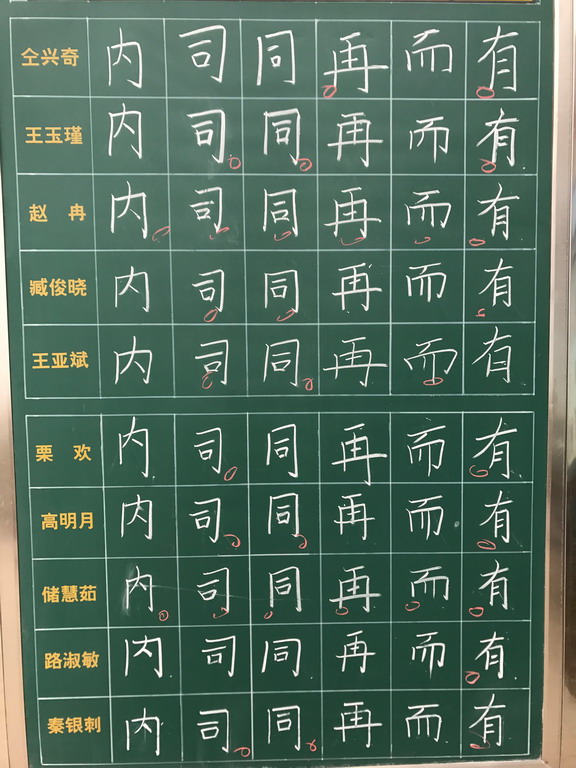 仝兴奇 内 司 同 再 而 有
王玉瑾 内 司 同 再 而 有
赵 冉 内 司 同 再 而 有
臧俊晓 内 司 同 再 而 有
王亚斌 内 司 同 再 而 有
栗 欢 内 司 同 再 而 有
高明月 内 司 同 再 而 有
储慧茹 内 司 同 再 而 有
路淑敏 内 司 同 再 而 有
秦银刺 内 司 同 再 而 有